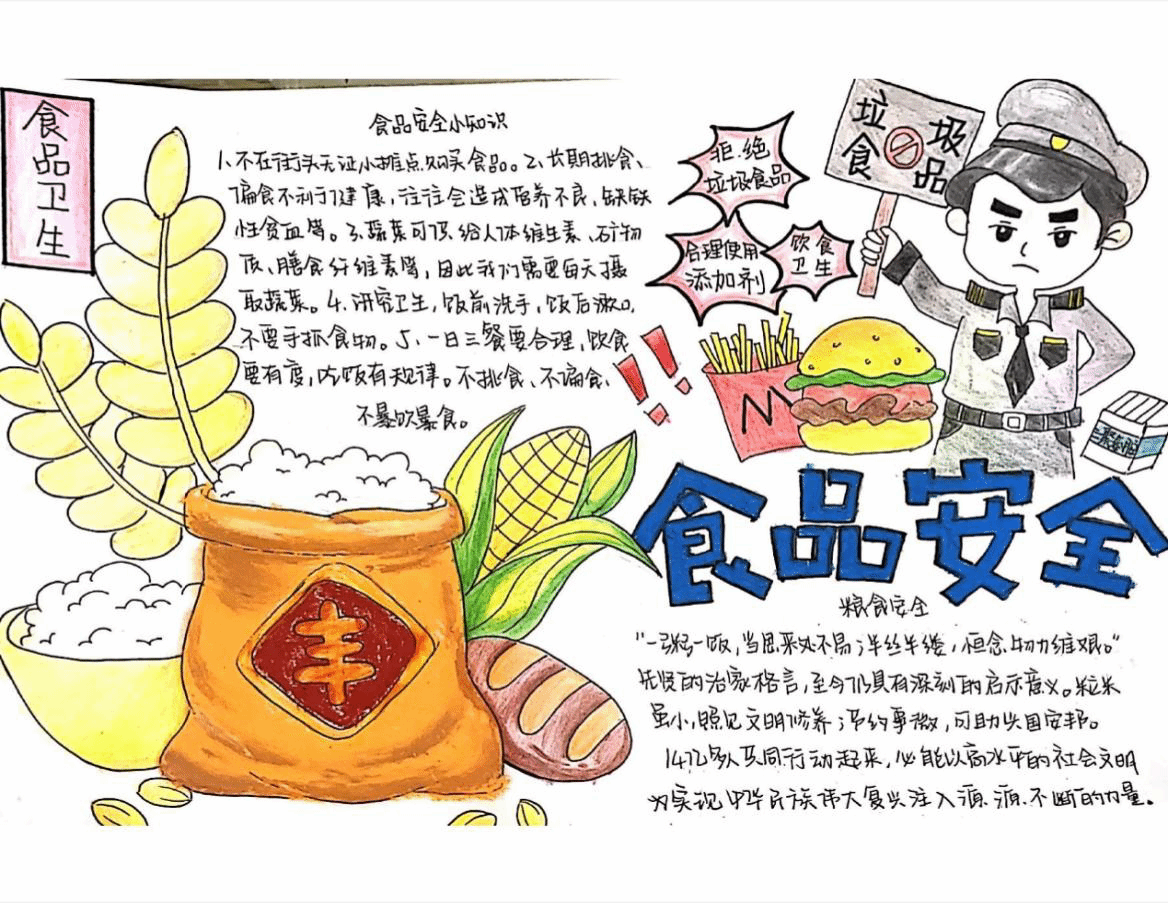 食品卫生
食品安全小知识
1、不在街头无证小摊点购买食品。2、长期挑食、
偏食不利于健康，往往会造成营养不良，缺铁
性贫血等。3、蔬菜可以给人体维生素、矿物
质、膳食纤维素等，因此我们需要每天摄
取蔬菜。4、讲究卫生，饭前洗手，饭后漱口，
不要手抓食物。5、一日三餐要合理，饮食
要有度，吃饭有规律。不挑食、不偏食、
不暴饮暴食。
拒绝
垃圾食品
合理使用
添加剂
饮食
卫生
垃圾
食品
M
食品安全
粮食安全
"一粥一饭，当思来处不易；半丝半缕，恒念物力维艰。"
先贤的治家格言，至今仍具有深刻的启示意义。粒米
虽小，照见文明修养；节约事微，可助兴国安邦。
14亿多人民共同行动起来，必能以高水平的社会文明
为实现中华民族伟大复兴注入源源不断的力量。
丰